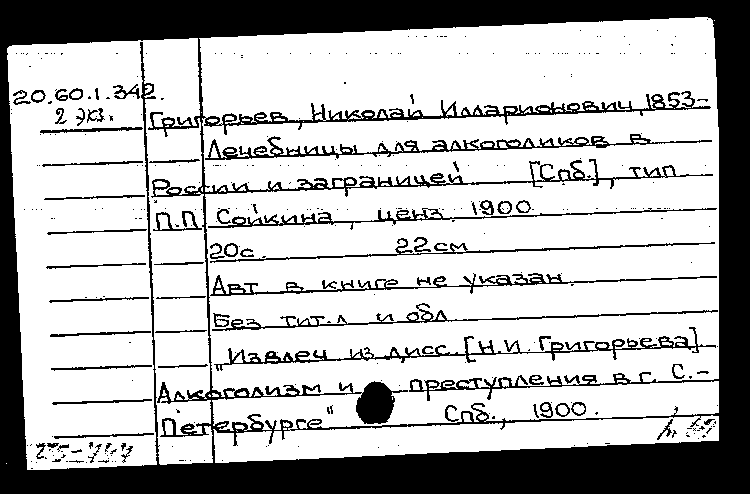 20.60.1.342.
2 экз.
Григорьев, Николай Илларионович, 1853-
Лечебницы для алкоголиков в
России и заграницей [Спб.], тип
П.П. Сойкина, ценз. 1900.
20с. 22см
Авт. в книге не указан.
Без тит.л. и обл.
"Извлеч. из дисс. [Н.И. Григорьева]
Алкоголизм и преступления в г. С.-
Петербурге" Спб., 1900.